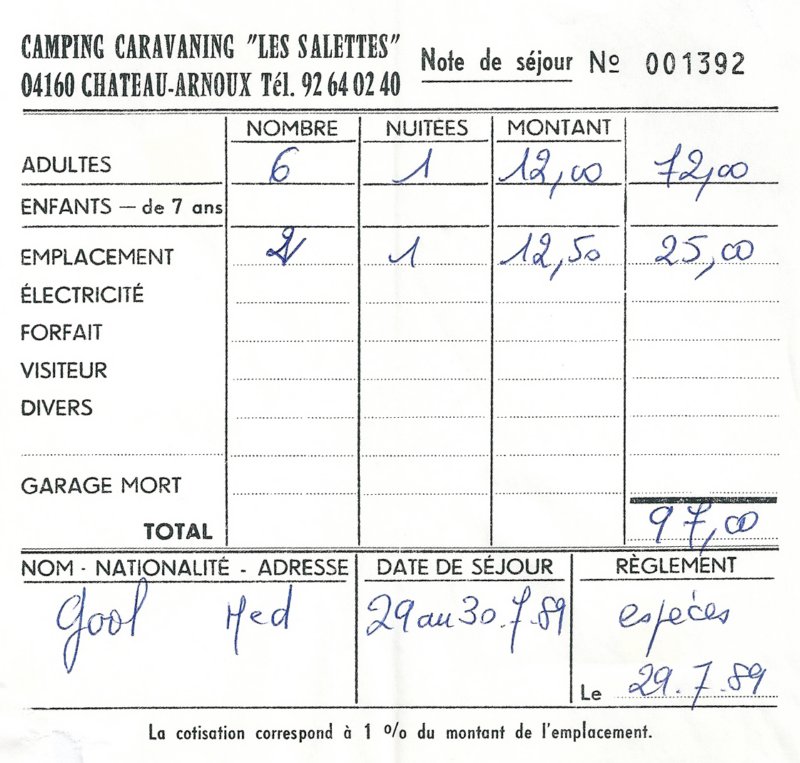 CAMPING CARAVANING "LES SALETTES"
04160 CHATEAU-ARNOUX Tél. 92 64 02 40
Note de séjour Nº 001392
NOMBRE NUITÉES MONTANT
ADULTES 6 1 12,00 72,00
ENFANTS — de 7 ans
EMPLACEMENT 2 1 12,50 25,00
ÉLECTRICITÉ
FORFAIT
VISITEUR
DIVERS
GARAGE MORT
TOTAL 97,00
NOM - NATIONALITÉ - ADRESSE DATE DE SÉJOUR RÈGLEMENT
Gool Ned 29 au 30.7.89 espèces
Le 29.7.89
La cotisation correspond à 1 % du montant de l'emplacement.